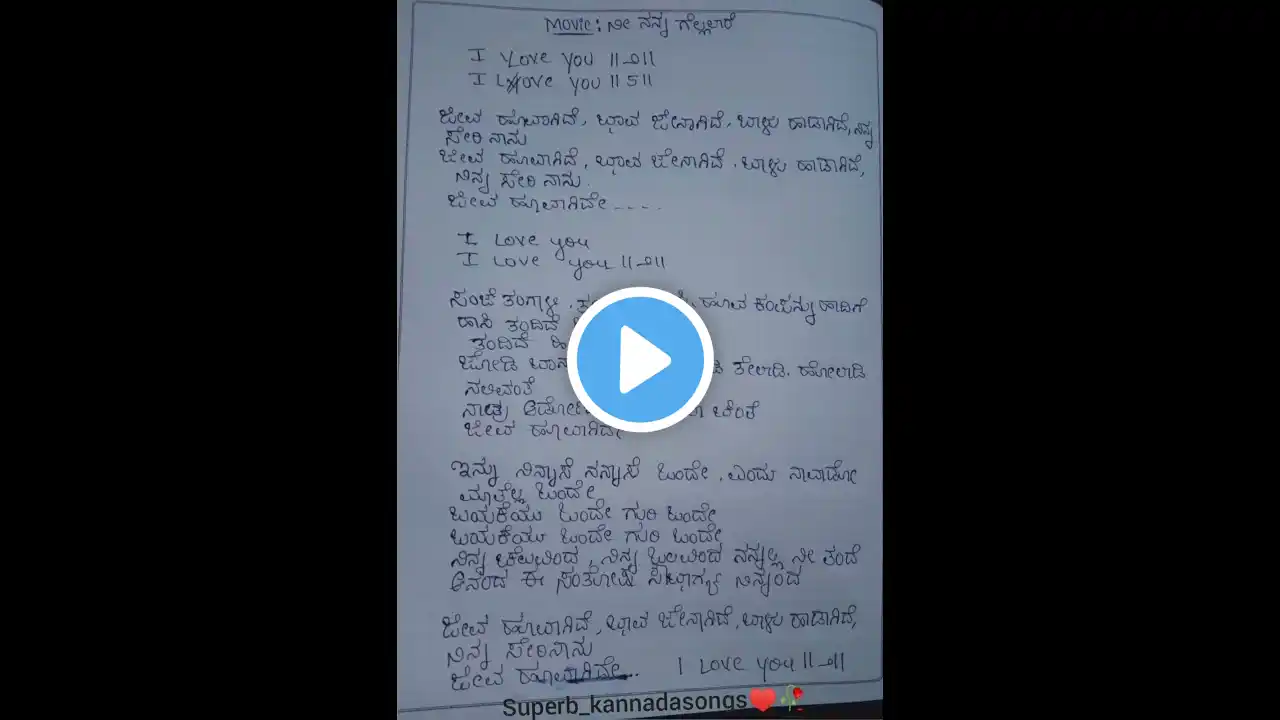 Movie: ನೀ ನನ್ನ ಗೆಲ್ಲಲಾರೆ
I Love you ||೨||
I Love you ||5||
ಜೀವ ಹೂವಾಗಿದೆ, ಭಾವ ಜೇನಾಗಿದೆ, ಬಾಳು ಹಾಡಾಗಿದೆ, ನಿನ್ನ
ಸೇರಿ ನಾನು
ಜೀವ ಹೂವಾಗಿದೆ, ಭಾವ ಜೇನಾಗಿದೆ, ಬಾಳು ಹಾಡಾಗಿದೆ,
ನಿನ್ನ ಸೇರಿ ನಾನು.
ಜೀವ ಹೂವಾಗಿದೇ....
I Love you
I Love you ||೨||
ಸಂಜೆ ತಂಗಾಳಿ, ಹೂವ ಕಂಪನ್ನು ಹಾದಿಗೆ
ಹಾಸಿ ತಂದಿದೆ
ತಂದಿದೆ
ಜೋಡಿ ತೇಲಾಡಿ. ಹೋಲಾಡಿ
ನಲಿವಂತೆ
ನಾವು ಚೆಂತೆ
ಜೀವ ಹೂವಾಗಿದೇ
ಇನ್ನು ನಿನ್ನಾಸೆ ನನ್ನಾಸೆ ಒಂದೇ, ಎಂದು ನಾವಾಡೋ
ಮಾತೆಲ್ಲ ಒಂದೇ
ಬಯಕೆಯು ಒಂದೇ ಗುರಿ ಒಂದೇ
ಬಯಕೆಯು ಒಂದೇ ಗುರಿ ಒಂದೇ
ನಿನ್ನ ಚೆಲುವಿಂದ, ನಿನ್ನ ಒಲವಿಂದ ನನ್ನಲ್ಲಿ ನೀ ತಂದೆ
ಆನಂದ ಈ ಸಂತೋಷ ಸೌಭಾಗ್ಯ ನಿನ್ನಿಂದ
ಜೀವ ಹೂವಾಗಿದೆ, ಭಾವ ಜೇನಾಗಿದೆ, ಬಾಳು ಹಾಡಾಗಿದೆ,
ನಿನ್ನ ಸೇರಿ ನಾನು
ಜೀವ ಹೂವಾಗಿದೇ.. I Love you ||೨||
Superb_kannadasongs❤️🥀